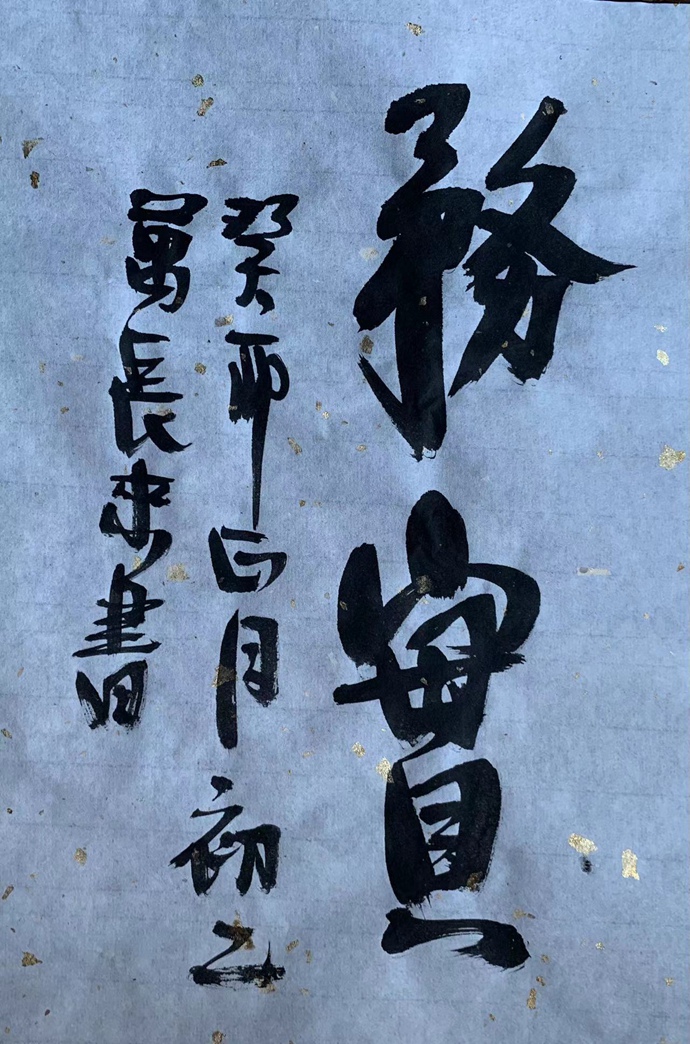 務實
癸卯正月初二
萬長來書